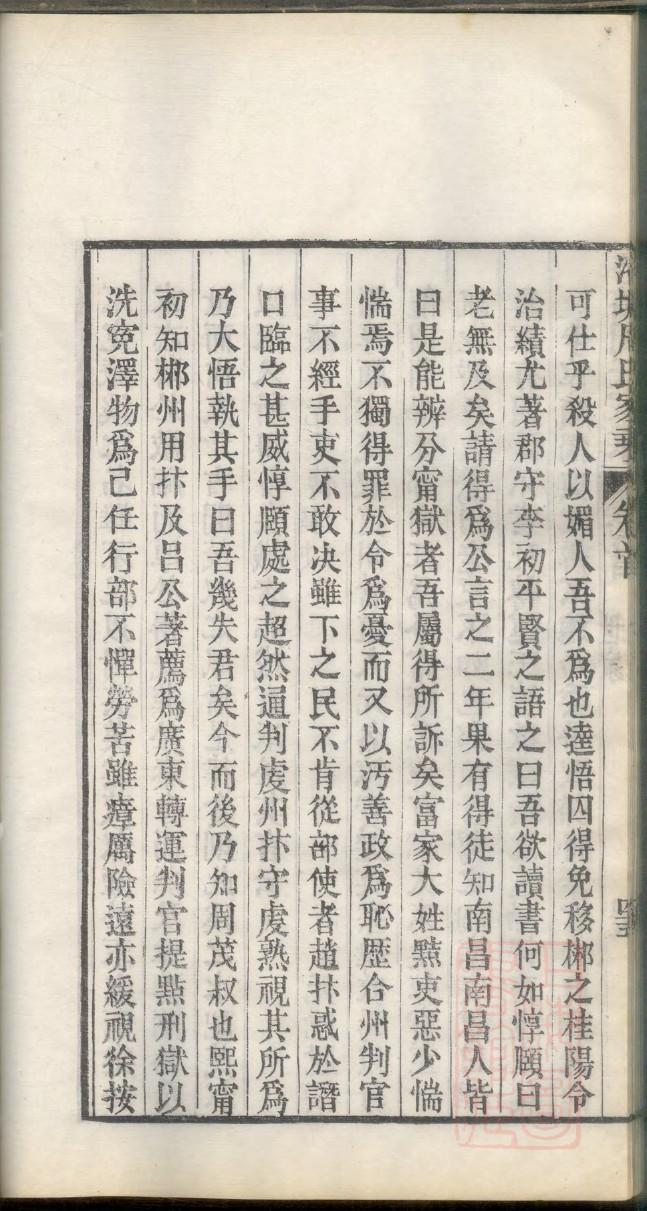 周氏家乘
可仕乎殺人以媚人吾不爲也逵悟囚得免移郴之桂陽令
治績尤著郡守李初平賢之語之曰吾欲讀書何如惇頤曰
老無及矣請得爲公言之二年果有得徒知南昌南昌人皆
曰是能辨分甯獄者吾屬得所訴矣富家大姓黠吏惡少惴
惴焉不獨得罪於令爲憂而又以汚善政爲恥歴合州判官
事不經手吏不敢決雖下之民不肯從部使者趙抃惑於譖
口臨之甚威惇頤處之超然通判虔州抃守虔熟視其所爲
乃大悟執其手曰吾幾失君矣今而後乃知周茂叔也熙甯
初知郴州用抃及呂公著薦爲廣東轉運判官提點刑獄以
洗寃澤物爲己任行部不憚勞苦雖瘴厲險遠亦緩視徐按